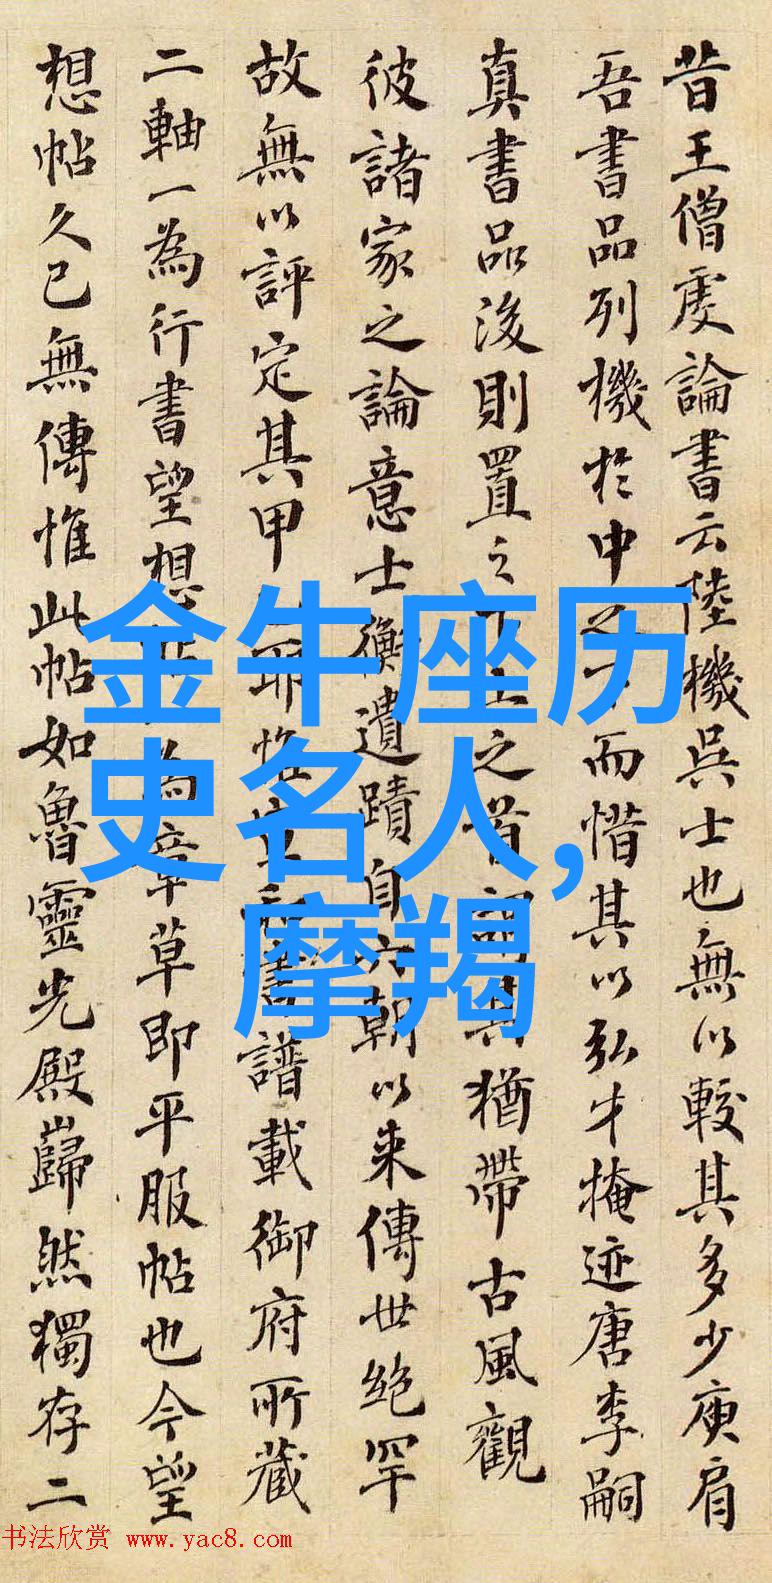 昔王僧虔論書云陸機吳士也無以較其多少庾肩
吾書品列機於中之下而惜其以弘才掩迹唐李嗣
真書品後則置之下上之首謂其猶帶古風觀
彼諸家之論意士衡遺蹟自六朝以来傳世絶罕
故無以評定其甲耶惟宣和書譜載御府所藏
二軸一為行書望想帖為章草即平服帖也今望
想帖久已無傳惟此帖如魯靈光殿巋然獨存二
金牛座历
史名人,
摩羯
书法欣赏 www.yac8.com